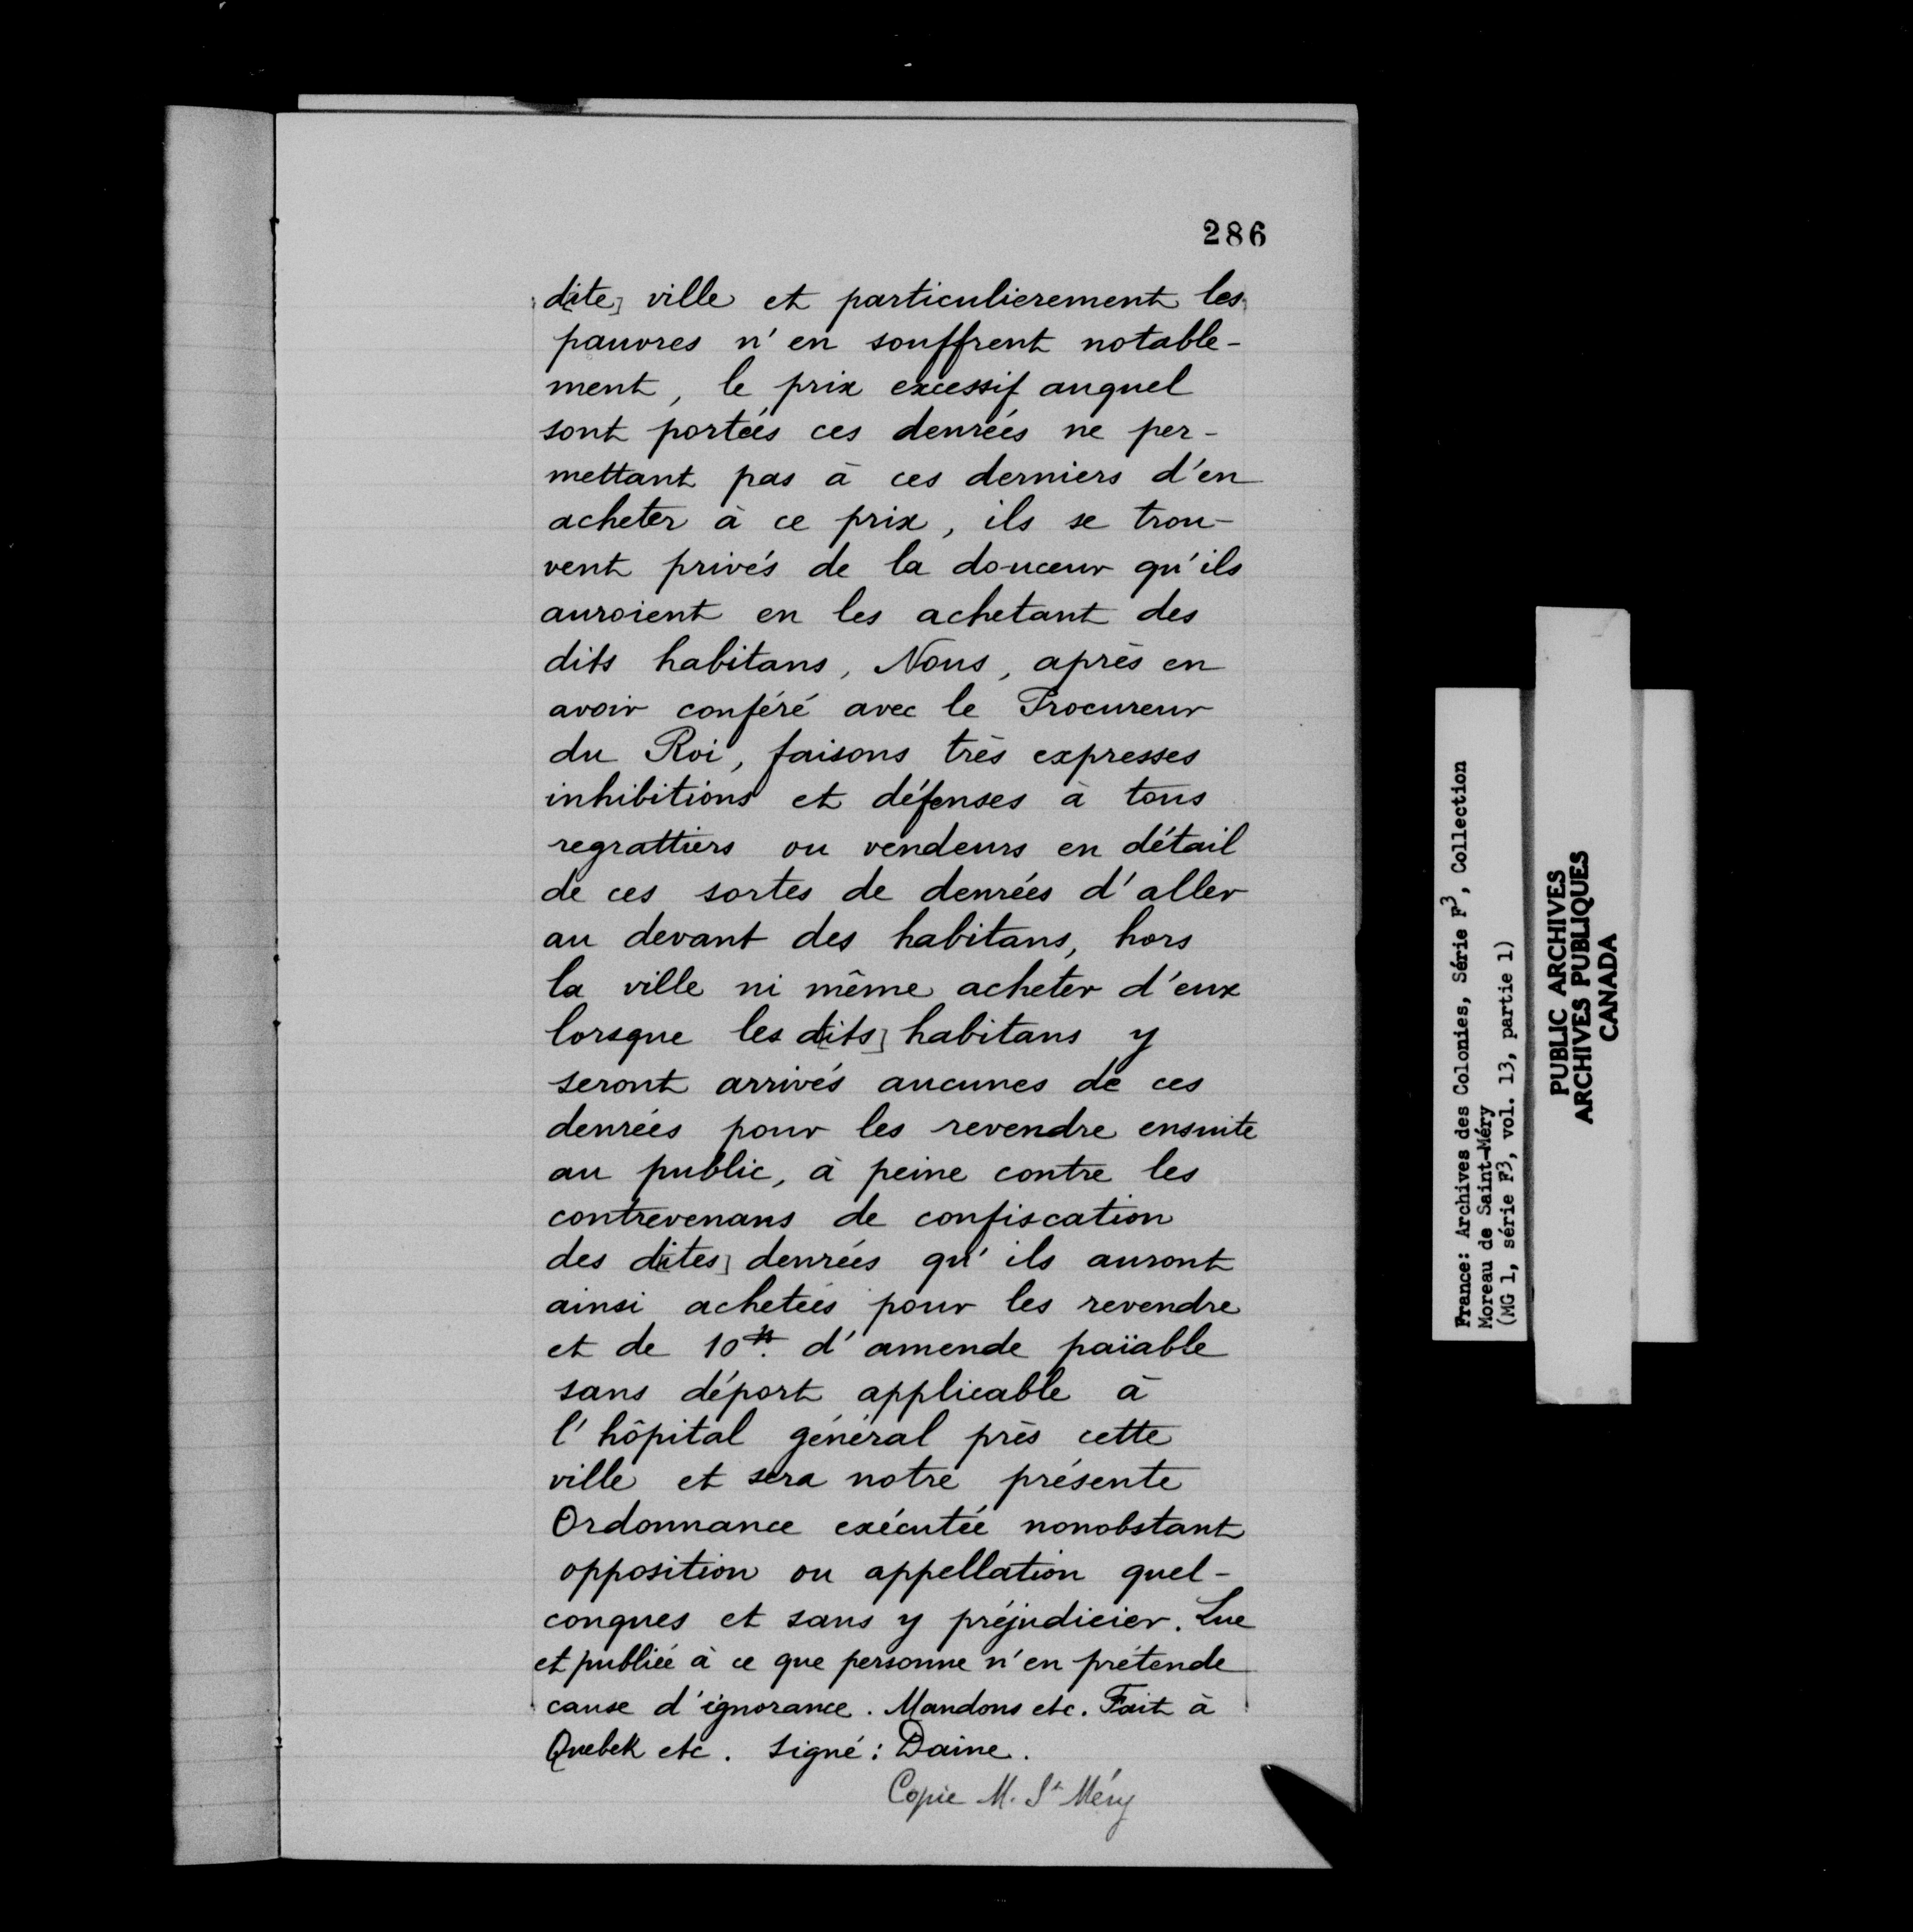 286
d[ite] ville et particulierement les
pauvres n'en souffrent notable-
ment, le prix excessif auquel
sont portées ces denrées ne per-
mettant pas à ces derniers d'en
acheter à ce prix, ils se trou-
vent privés de la douceur qu'ils
auroient en les achetant des
dits habitans, Nous, après en
avoir conféré avec le Procureur
du Roi, faisons très expresses
inhibitions et défenses à tous
regrattiers ou vendeurs en détail
de ces sortes de denrées d'aller
au devant des habitans, hors
la ville ni même acheter d'eux
lorsque les d[its] habitans y
seront arrivés aucunes de ces
denrées pour les revendre ensuite
au public, à peine contre les
contrevenans de confiscation
des d[ites] denrées qu'ils auront
ainsi achetées pour les revendre
et de 10₶. d'amende païable
sans déport applicable à
l'hôpital général près cette
ville et sera notre présente
Ordonnance exécutée nonobstant
opposition ou appellation quel-
conques et sans y préjudicier. Lue
et publiée à ce que personne n'en prétende
cause d'ignorance. Mandons etc. Fait à
Quebek etc. Signé: Daine.
Copie M. St Méry
France: Archives des Colonies, Série F3, Collection
Moreau de Saint-Méry
(MG 1, série F3, vol. 13, partie 1)
PUBLIC ARCHIVES
ARCHIVES PUBLIQUES
CANADA